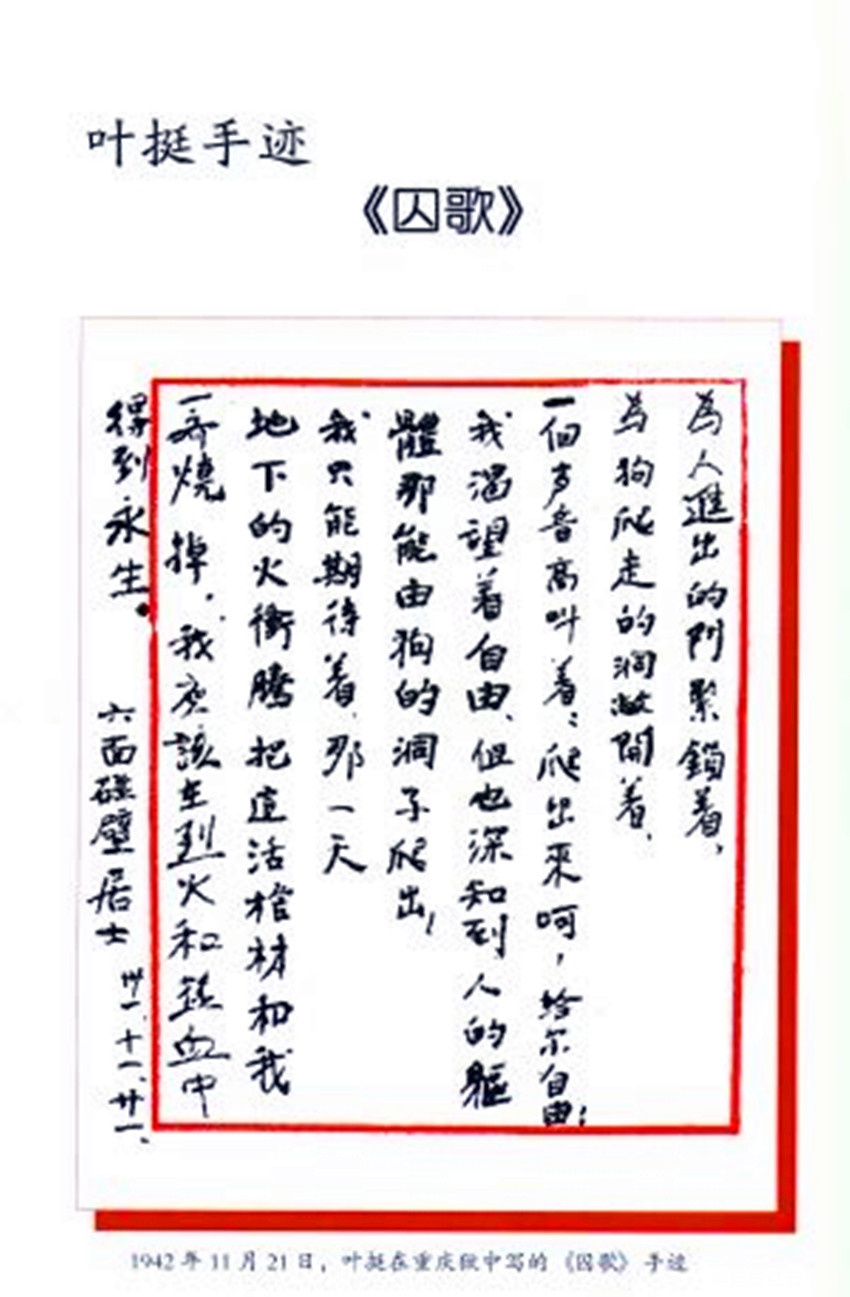 叶挺手迹
《囚歌》
為人進出的門緊鎖着,
為狗爬走的洞敞開着、
一個声音高叫着:爬出來呵,給尔自由!
我渴望着自由、但也深知到人的軀
體那能由狗的洞子爬出!
我只能期待着、那一天
地下的火衝騰把這活棺材和我
一齐燒掉,我应該在烈火和熱血中
得到永生。
六面碰壁居士
卅一、十一、廿一、
1942年11月21日,叶挺在重庆狱中写的《囚歌》手迹